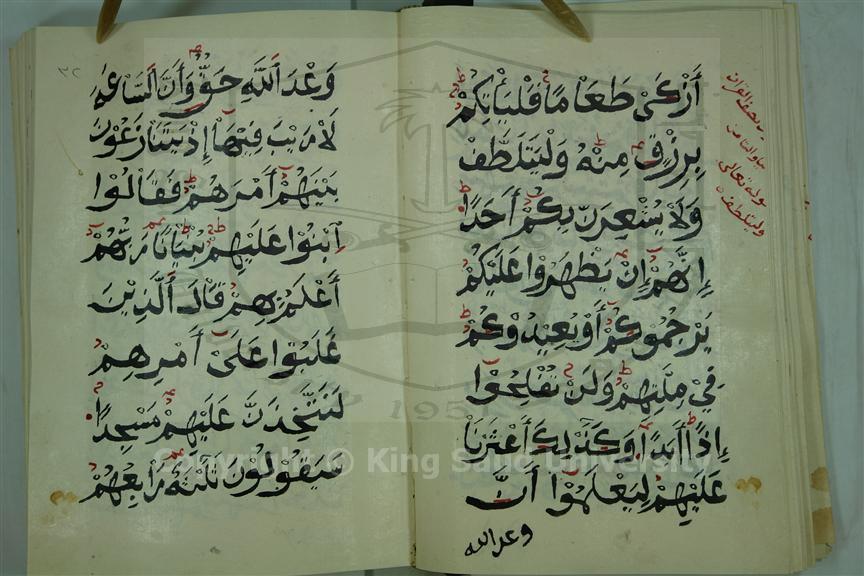 أَزْكَىٰ طَعَامًا فَلْيَأْتِكُمْ
بِرِزْقٍ مِنْهُ وَلْيَتَلَطَّفْ
وَلَا يُشْعِرَنَّ بِكُمْ أَحَدًا
إِنَّهُمْ إِنْ يَظْهَرُوا عَلَيْكُمْ
يَرْجُمُوكُمْ أَوْ يُعِيدُوكُمْ
فِي مِلَّتِهِمْ وَلَنْ تُفْلِحُوا
إِذًا أَبَدًا وَكَذَٰلِكَ أَعْثَرْنَا
عَلَيْهِمْ لِيَعْلَمُوا أَنَّ
وعد الله
نصف القران
قوله تعالى
وليتلطف
٣٢
وَعْدَ اللَّهِ حَقٌّ وَأَنَّ السَّاعَةَ
لَا رَيْبَ فِيهَا إِذْ يَتَنَازَعُونَ
بَيْنَهُمْ أَمْرَهُمْ فَقَالُوا
ابْنُوا عَلَيْهِمْ بُنْيَانًا رَبُّهُمْ
أَعْلَمُ بِهِمْ قَالَ الَّذِينَ
غَلَبُوا عَلَىٰ أَمْرِهِمْ
لَنَتَّخِذَنَّ عَلَيْهِمْ مَسْجِدًا
سَيَقُولُونَ ثَلَٰثَةٌ رَابِعُهُمْ
Copyright © King Saud University
195